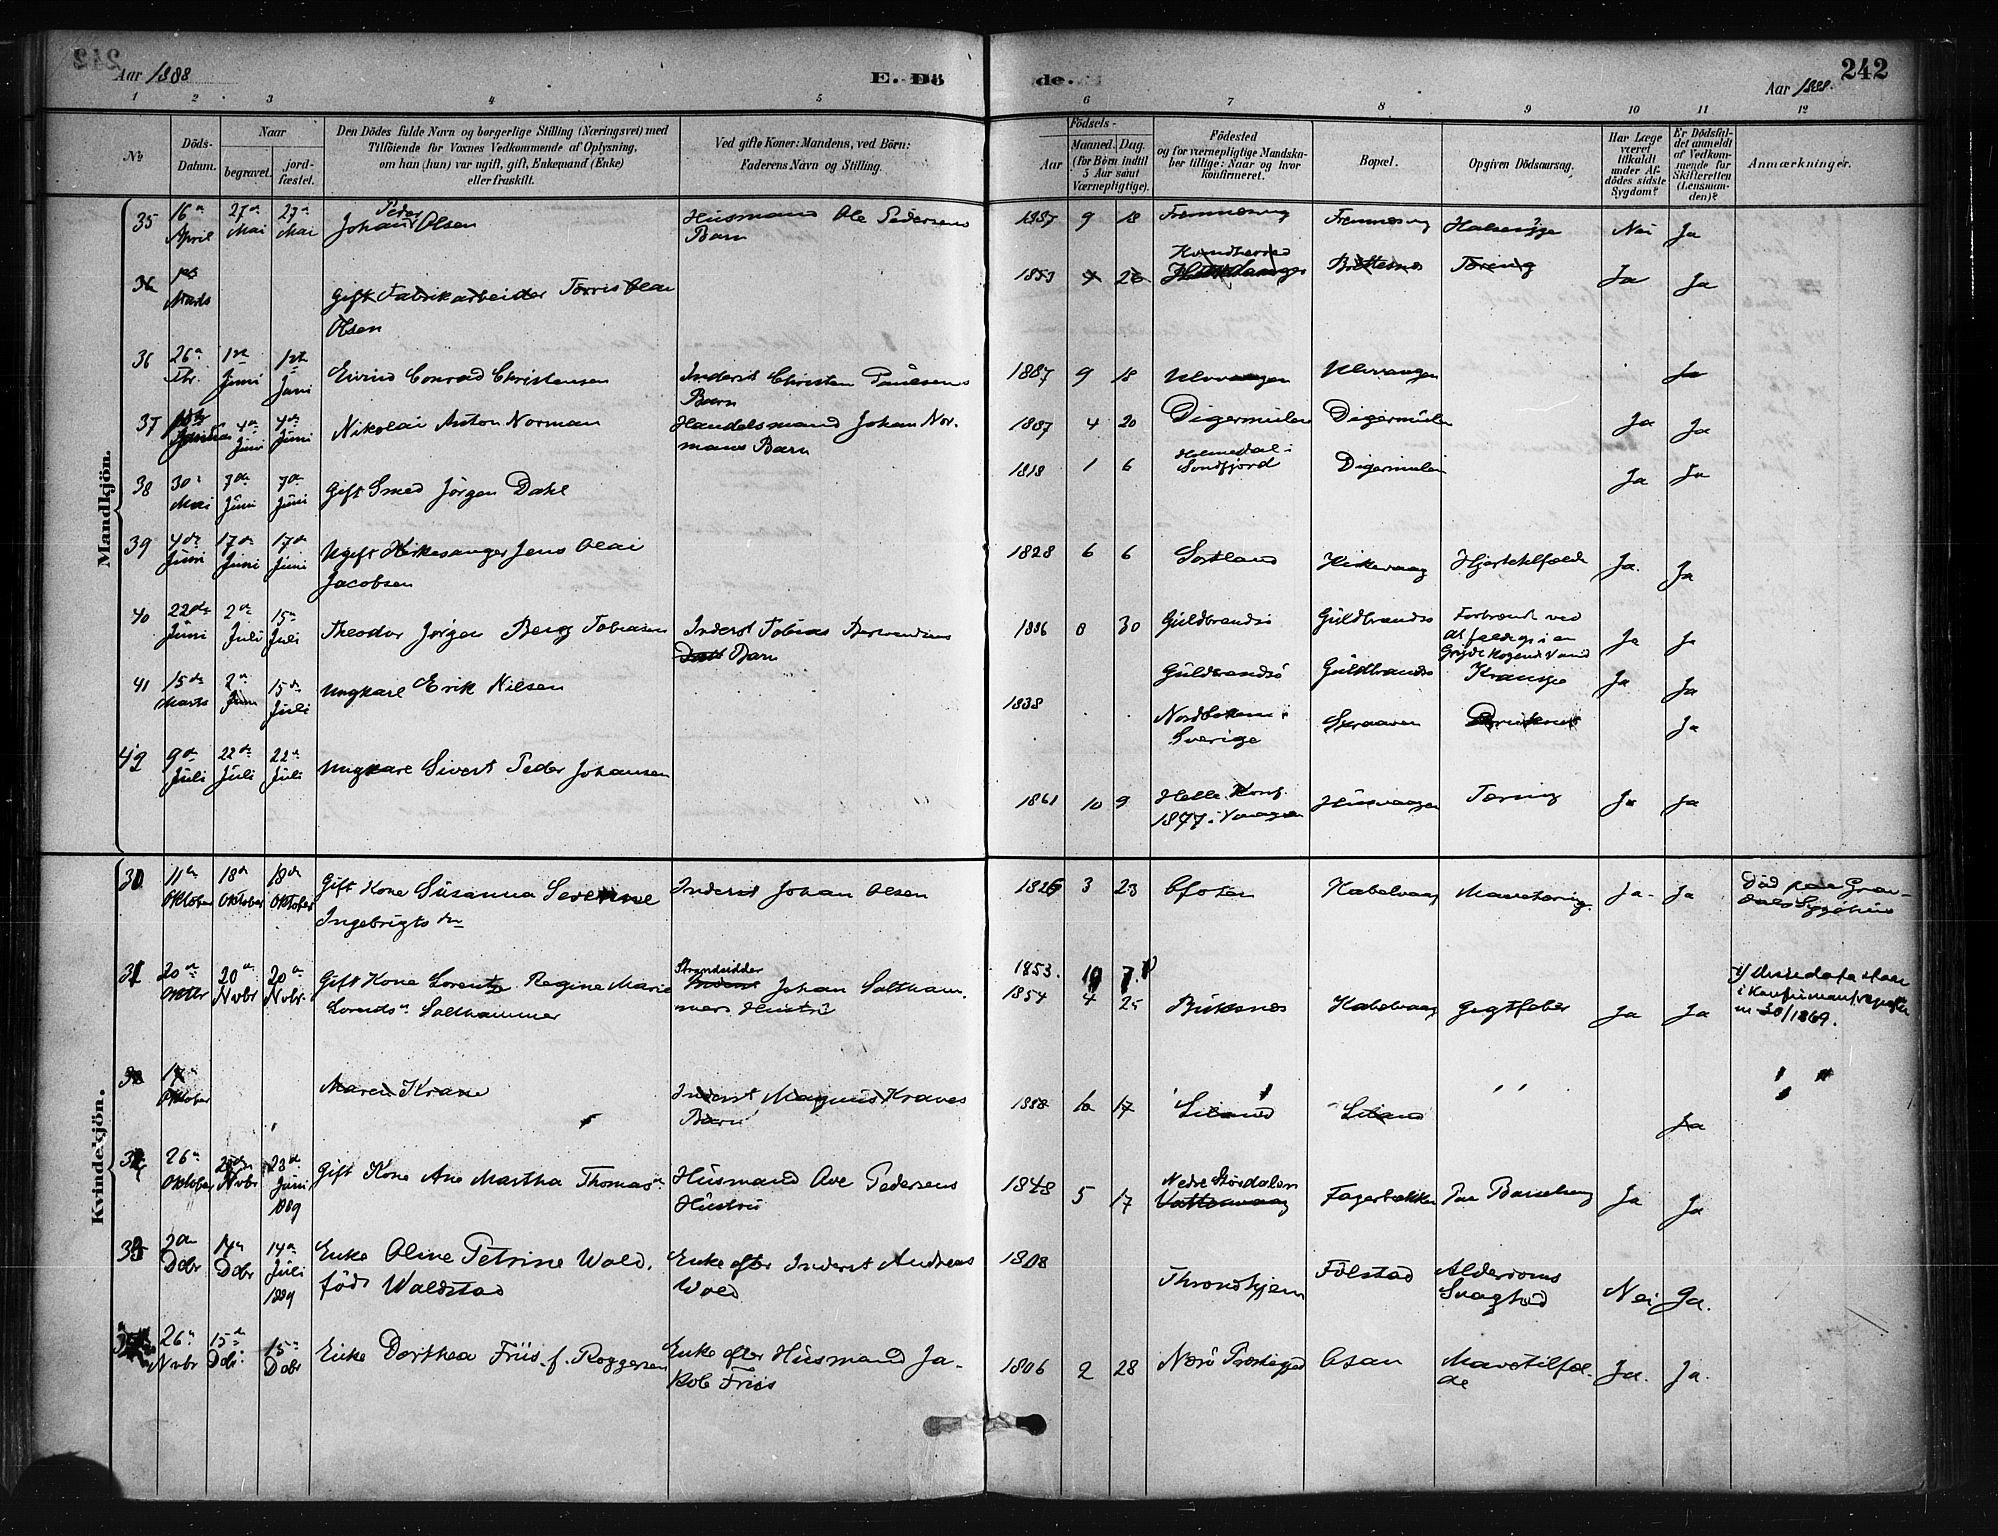 242
Aar 1888
E. Dö
de.
Aar 1888.
242
1 2 3 4 5 6 7 8 9 10 11 12
No
Döds-
Datum.
Naar
begravet.
jord-
fæstet.
Den Dödes fulde Navn og borgerlige Stilling (Næringsvei) med
Tilföiende for Voxnes Vedkommende af Oplysning,
om han (hun) var ugift, gift, Enkemand (Enke)
eller fraskilt.
Ved gifte Koner: Mandens, ved Börn:
Faderens Navn og Stilling.
Födsels-
Aar
Maaned. Dag.
(for Börn indtil
5 Aar samt
Værnepligtige).
Födested
og for værnepligtige Mandska-
ber tillige: Naar og hvor
konfirmeret.
Bopæl.
Opgiven Dödsaarsag.
Har Læge
været
tilkaldt
under Af-
dödes sidste
Sygdom?
Er Dödsfal-
det anmeldt
af Vedkom-
mende for
Skifteretten
(Lensman-
den)?
Anmærkninger.
Mandkjön.
35 16de April 27de Mai 27de Mai Johan Peder Olsen Husmand Ole Pedersens Barn 1887 9 18 Halsesyge Nei Ja
36 Marts Gift Fabrikarbeider Torris Olai Olsen 1853 26 Kvindherred Tæring Ja Ja
36 26de Juni Juni Eivind Conrad Christensen Inderst Christen Paulsens Barn 1887 9 18 Ulvvaagen Ulvvaagen Ja
37 4de Juni 4de Juni Nikolai Anton Norman Handelsmand Johan Normans Barn 1887 4 20 Digermulen Digermulen Ja Ja
38 30 Mai 7de Juni 7de Juni Gift Smed Jörgen Dahl 1818 1 6 Holmedal i Sondfjord Digermulen Ja Ja
39 4de Juni 17de Juni 17de Juni Ugift Kirkesanger Jens Olai Jacobsen 1828 6 6 Sortland Kirkevaag Hjertetilfælde Ja. Ja
40 22de Juni 2de Juli 15de Juli Theodor Jörgen Berg Tobiasen Inderst Tobias Barn 1886 8 30 Guldbrandsö Guldbrandsö Forbrændt ved at falde i en Gryde kogende Vand Ja Ja
41 15de Marts 2de 15de Juli Ungkarl Erik Nilsen 1838 Guldbrandsö Guldbrandsö Krampe Ja Ja
Sverige Skraaven Druknet Ja
42 9de Juli 22de Juli 22de Juli Ungkarl Sivert Peder Johansen 1861 10 9 Helle. Konf. 1877 i Vaagan Husvaagen Tæring Ja Ja
Kvindekjön.
11de Oktober 18de Oktober 18de Oktober Gift Kone Susanna Severine Ingebrigtsdtr Inderst Johan Olsen 1826 3 23 Ofoten Kabelvaag Mavetæring. Ja. Ja Död paa Gravdals Sygehus
20de Oktbr 20de Nvbr 20de Nvbr. Gift Kone Lorentze Regine Marie Lorendsdr Salthammer Strandsidder Johan Salthammers Hustru 1853. 1854 4 25 Buksnes Kabelvaag Gigtfeber Ja Ja i Konfirmantregister 1869.
17 Oktober Maren Krane Inderst Magnus Kranes Barn 1888 10 17 Liland Liland Ja
26de Oktober Nvbr 23de Juni 1889 Gift Kone Ane Martha Thomasdr Husmand Ove Pedersens Hustru 1848 5 17 Nedre Stördalen Fagerbakken Paa Barselseng Ja Ja
2den Dcbr 14de Dcbr 14de Juli 1889 Enke Oline Petrine Wold, född Waldstad Enke efter Inderst Andreas Wold 1808 Throndhjem Fölstad Alderdoms Svaghed Nei Ja.
26de Nvbr 15de Dcbr. 15de Dcbr Enke Dorthea Friis f. Roggersen Enke efter Husmand Jakob Friis 1806 2 28 Nærö Præstegjed Osan Mavetilfælde Ja. Ja.